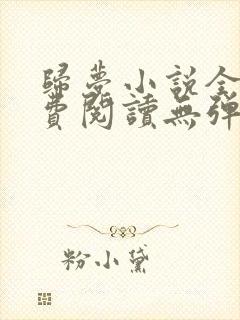 歸夢小說全
費閱讀無彈
粉小黛